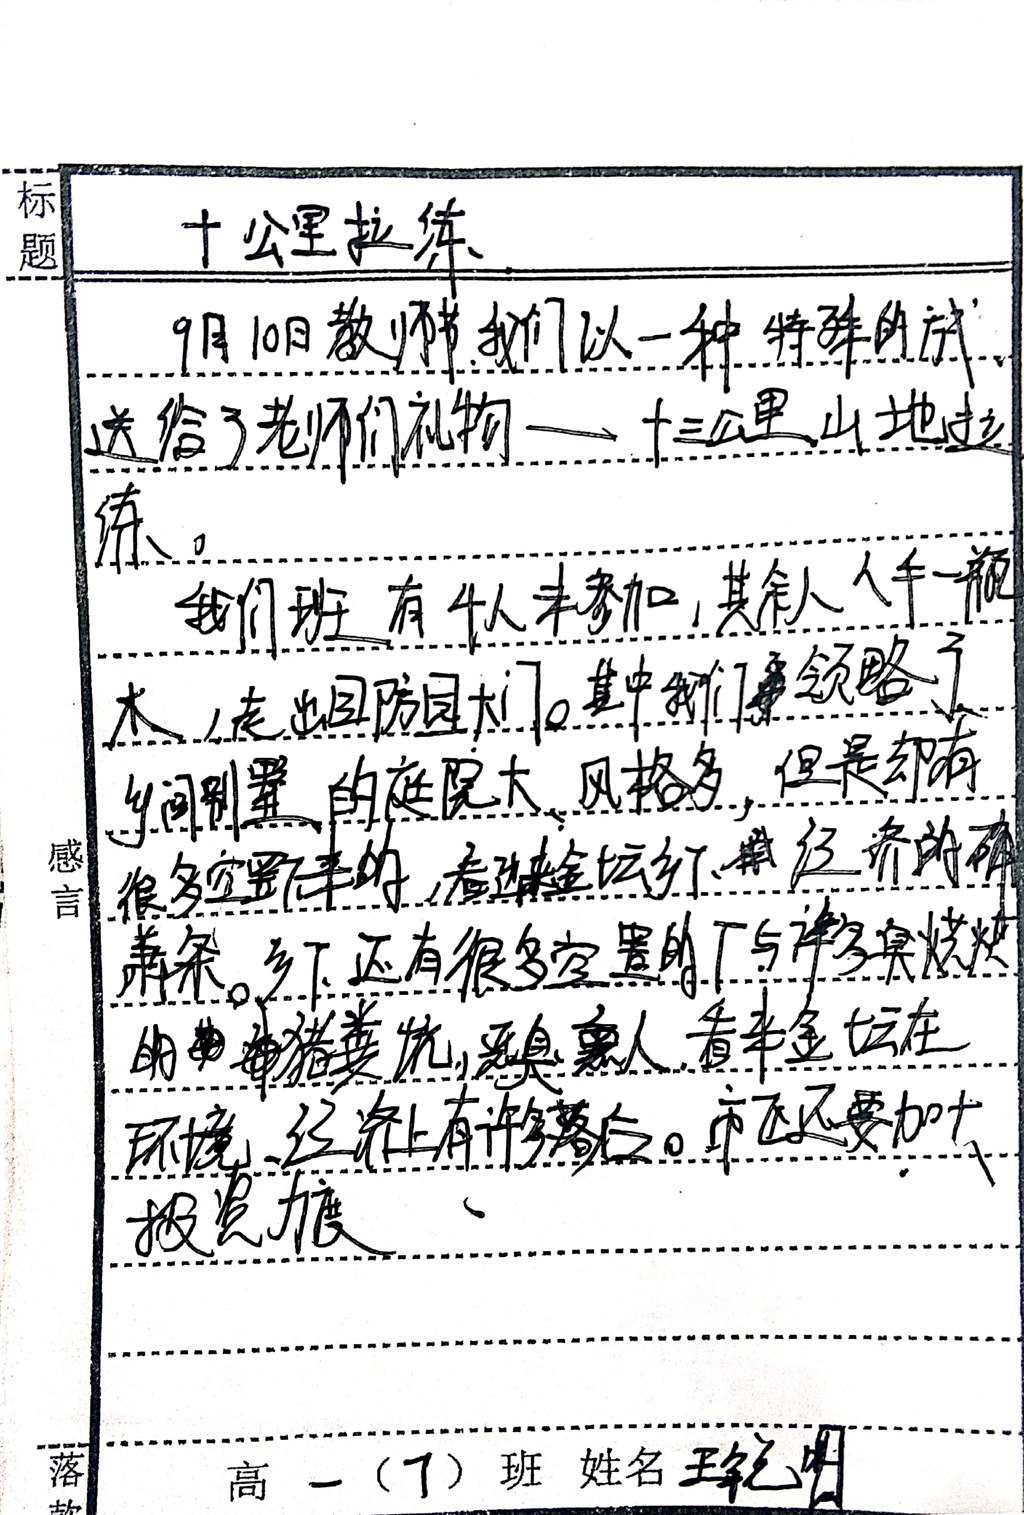 标题
十公里拉练
9月10日教师节,我们以一种特殊的方式
送给了老师们礼物——十三公里山地拉
练。
我们班有4人未参加,其余人人手一瓶
水,走出国防园大门。其中我们领略了
乡间别墅的庭院大、风格多,但是却有
很多空置下来的,看来金坛乡下经济的
萧条。乡下还有很多空置的厂与许多臭烘烘
的猪粪坑,恶臭熏人,看来金坛在
环境、经济上有许多落后。市区还要加大
投资力度
感言
落款
高一(7)班 姓名 王